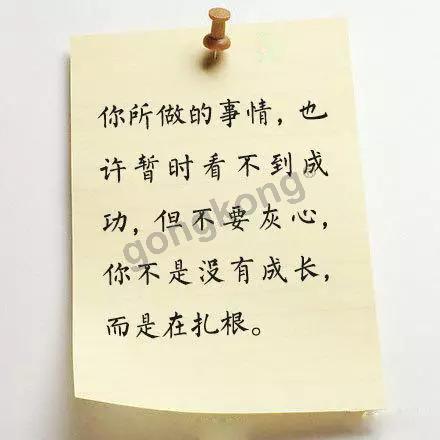 你所做的事情，也
许暂时看不到成
功，但不要灰心，
你不是没有成长，
而是在扎根。
gongkong®